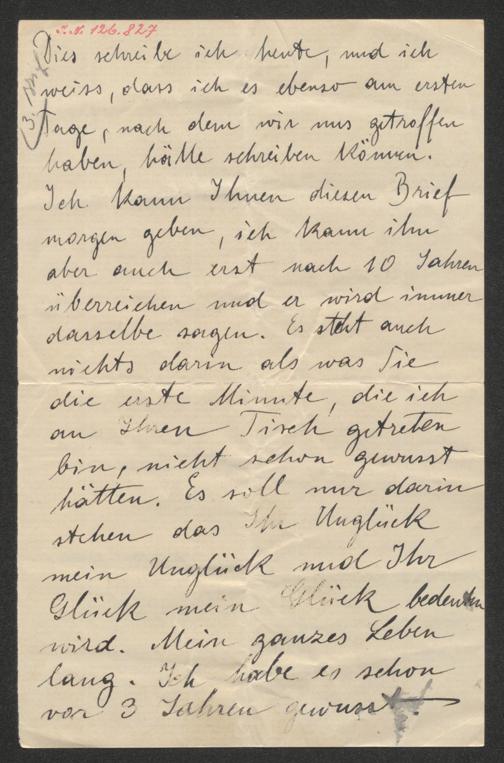 I.N. 126.827
Dies schreibe ich heute, und ich
weiss, dass ich es ebenso am ersten
Tage, nach dem wir uns getroffen
haben, hätte schreiben können.
Ich kann Ihnen diesen Brief
morgen geben, ich kann ihn
aber auch erst nach 10 Jahren
überreichen und er wird immer
dasselbe sagen. Es steht auch
nichts darin als was Sie
die erste Minute, die ich
an Ihren Tisch getreten
bin, nicht schon gewusst
hätten. Es soll nur darin
stehen das Ihr Unglück
mein Unglück und Ihr
Glück mein Glück bedeuten
wird. Mein ganzes Leben
lang. Ich habe es schon
vor 3 Jahren gewusst.